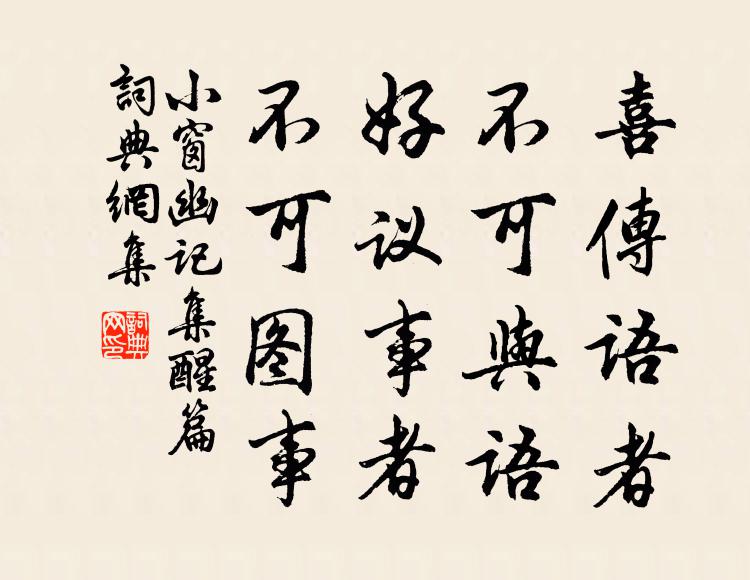 喜傳語者
不可與語
好议事者
不可图事
小窗幽记集醒篇
詞典網集
詞典
网印